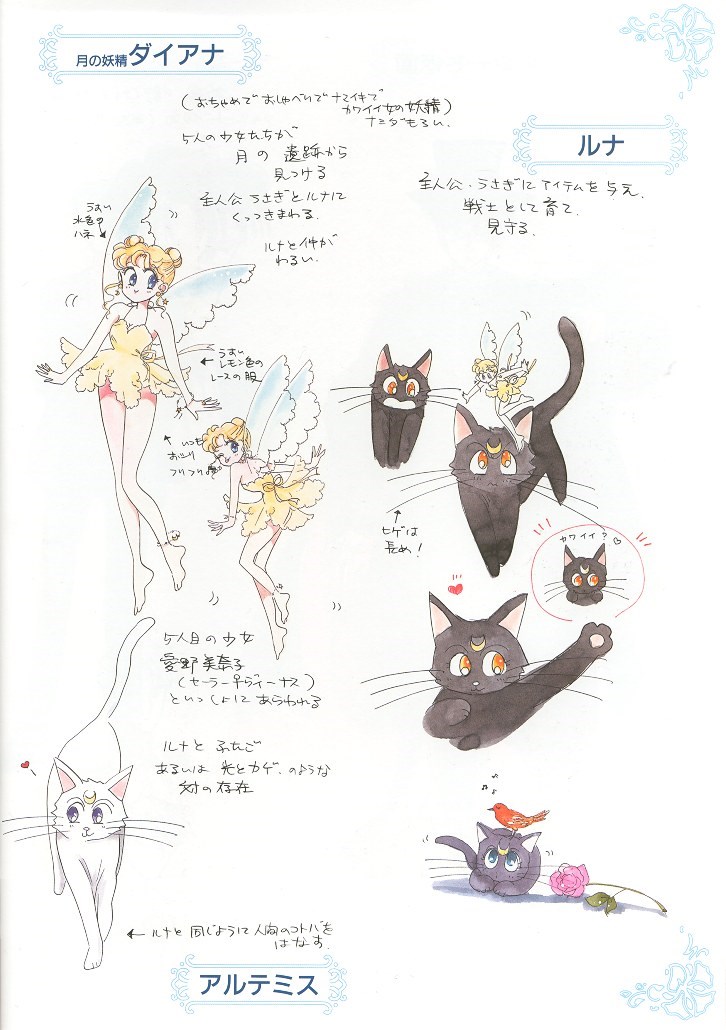 月の妖精ダイアナ
(おちゃめで おしゃべりで ナマイキで
カワイイ女の妖精)
ナミダもろい.
5人の少女たちが
月の 遺跡から
見つける
主人公 うさぎとルナに
くっつきまわる.
ルナと仲が
わるい.
うすい
水色の
ハネ
うすい
レモン色の
レースの服
いつも
おこり
ルナ
主人公・うさぎに アイテムを 与え,
戦士として育て,
見守る.
ヒゲは
長め!
カワイイ?♡
5人目の少女
愛野 美奈子
(セーラーVヴィーナス)
といっしょに あらわれる
ルナと ふたご
あるいは 光とカゲ.のような
対の存在
← ルナと 同じように 人間のコトバを
はなす.
アルテミス